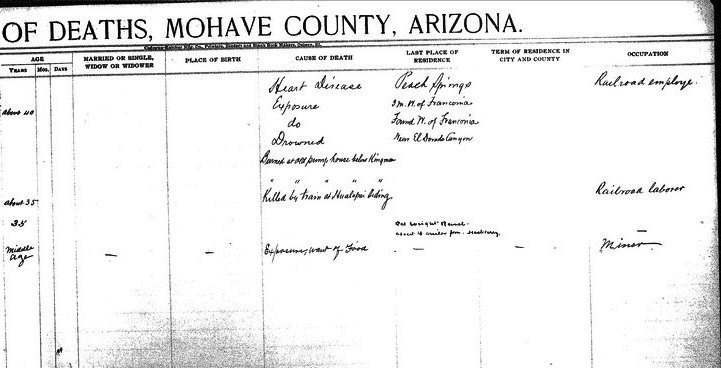 OF DEATHS, MOHAVE COUNTY, ARIZONA.
AGE
YEARS MOS. DAYS
MARRIED OR SINGLE, WIDOW OR WIDOWER
PLACE OF BIRTH
CAUSE OF DEATH
LAST PLACE OF RESIDENCE
TERM OF RESIDENCE IN CITY AND COUNTY
OCCUPATION
Heart Disease Peach Springs Railroad employe.
about 40 Exposure W. of Franconia
do Found W. of Franconia
Drowned Near El Dorado Canyon
Burned at old pump house below Kingman
" " " " "
about 35 Killed by train at Hualapai Siding. Railroad laborer
35 about 4 miles from —
Middle age — — Exposure, want of Food — — Miner